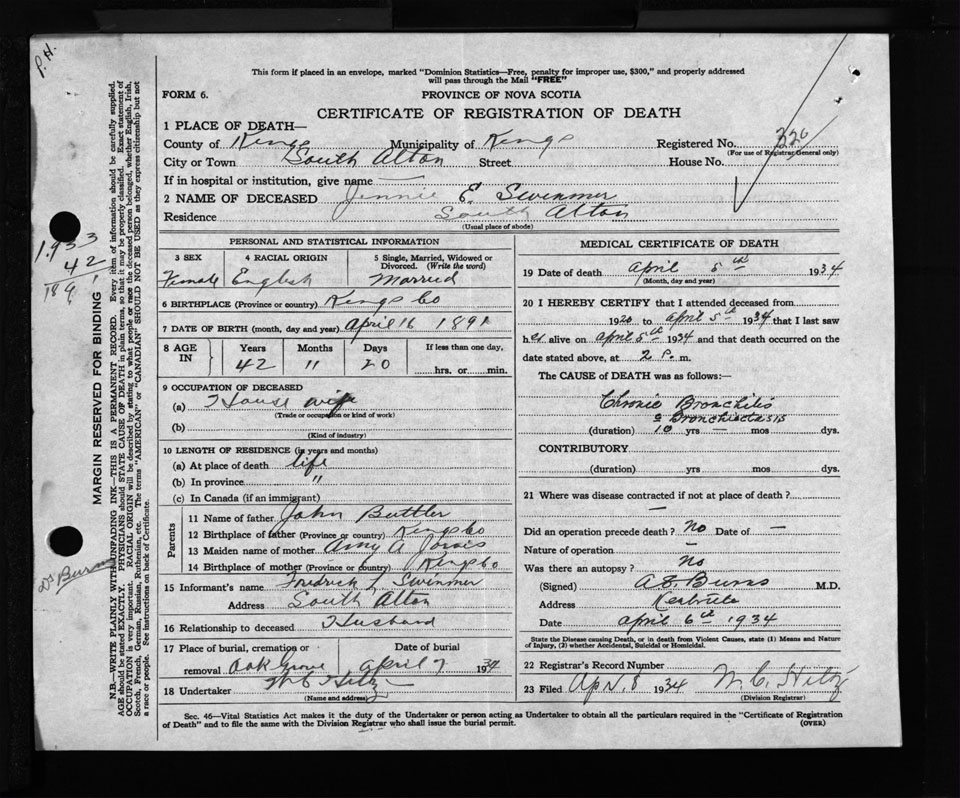 P.H.
This form if placed in an envelope, marked "Dominion Statistics—Free, penalty for improper use, $300," and properly addressed
will pass through the Mail "FREE"
FORM 6.
PROVINCE OF NOVA SCOTIA
CERTIFICATE OF REGISTRATION OF DEATH
1 PLACE OF DEATH—
County of Kings Municipality of Kings Registered No. 326
(For use of Registrar General only)
City or Town South Alton Street House No.
If in hospital or institution, give name —
2 NAME OF DECEASED Jennie E. Swinmer
Residence South Alton
(Usual place of abode)
PERSONAL AND STATISTICAL INFORMATION
3 SEX 4 RACIAL ORIGIN 5 Single, Married, Widowed or
Divorced. (Write the word)
Female English Married
6 BIRTHPLACE (Province or country) Kings Co
7 DATE OF BIRTH (month, day and year) April 16 1891
8 AGE IN Years Months Days If less than one day,
42 11 20 hrs. or min.
9 OCCUPATION OF DECEASED
(a) House wife
(Trade or occupation or kind of work)
(b)
(Kind of industry)
10 LENGTH OF RESIDENCE (in years and months)
(a) At place of death life
(b) In province "
(c) In Canada (if an immigrant)
Parents
11 Name of father John Buttler
12 Birthplace of father (Province or country) Kings Co
13 Maiden name of mother Amy A
14 Birthplace of mother (Province or country) Kings Co
15 Informant's name Fredrick L Swinmer
Address South Alton
16 Relationship to deceased Husband
17 Place of burial, cremation or Date of burial
removal Oak Grove April 7 1934
18 Undertaker W C Hiltz
(Name and address)
MEDICAL CERTIFICATE OF DEATH
19 Date of death April 5th 1934
(Month, day and year)
20 I HEREBY CERTIFY that I attended deceased from
1920 to April 5th 1934 that I last saw
her alive on April 5th 1934 and that death occurred on the
date stated above, at 2 P. m.
The CAUSE of DEATH was as follows:—
Chronic Bronchitis
& Bronchiectasis
(duration) 10 yrs — mos dys.
CONTRIBUTORY
(duration) yrs mos dys.
21 Where was disease contracted if not at place of death?
—
Did an operation precede death? No Date of —
Nature of operation —
Was there an autopsy? No
(Signed) A S Burns M.D.
Address Kentville
Date April 6th 1934
State the Disease causing Death, or in death from Violent Causes, state (1) Means and Nature
of Injury, (2) whether Accidental, Suicidal or Homicidal.
22 Registrar's Record Number
23 Filed Apr. 8 1934 W. C. Hiltz
(Division Registrar)
Sec. 46—Vital Statistics Act makes it the duty of the Undertaker or person acting as Undertaker to obtain all the particulars required in the "Certificate of Registration
of Death" and to file the same with the Division Registrar who shall issue the burial permit. (OVER)
MARGIN RESERVED FOR BINDING
N.B.—WRITE PLAINLY WITH UNFADING INK—THIS IS A PERMANENT RECORD. Every item of information should be carefully supplied.
AGE should be stated EXACTLY. PHYSICIANS should STATE CAUSE OF DEATH in plain terms, so that it may be properly classified. Exact statement of
OCCUPATION is very important. RACIAL ORIGIN will be described by stating to what people or race the deceased person belonged, whether English, Irish,
Scotch, French, German, Russian, Ruthenian, etc. The terms "AMERICAN" or "CANADIAN" SHOULD NOT BE USED as they express citizenship but not
a race or people. See instructions on back of Certificate.
1933
42
1891
Dr Burns